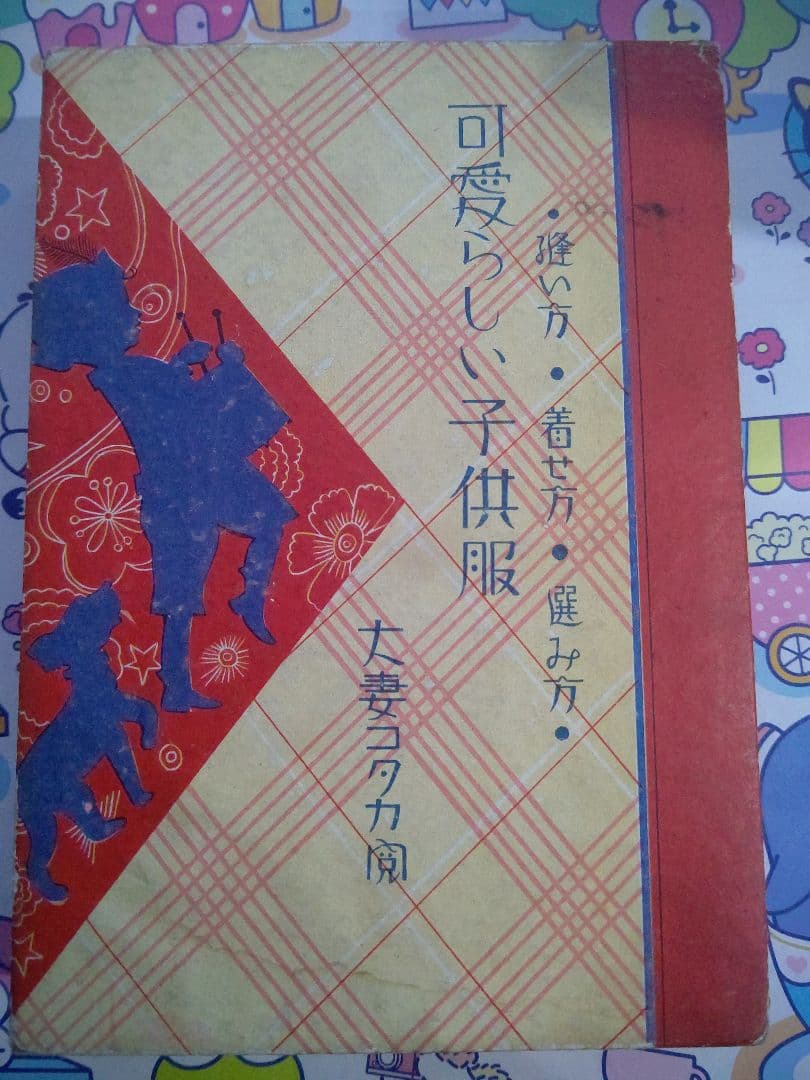 ・縫い方・着せ方・選み方・
可愛らしい子供服
大妻コタカ閲